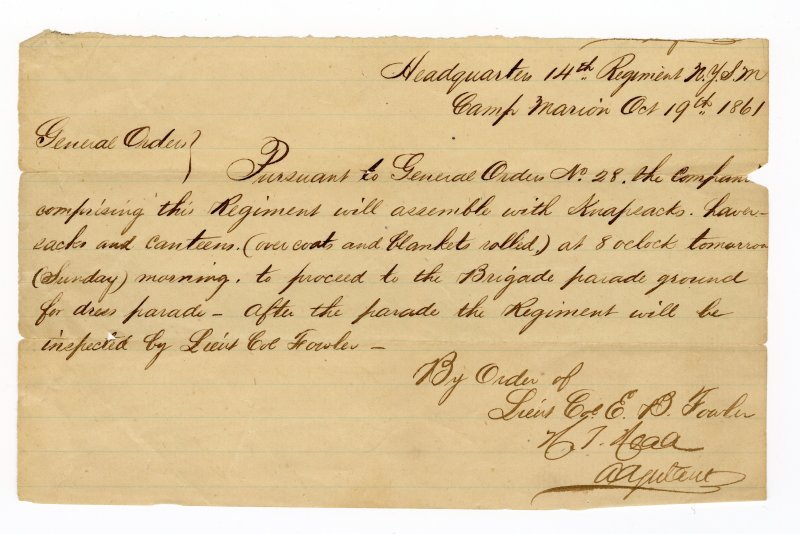 Headquarters 14th Regiment N.Y.S.M
Camp Marion Oct 19th 1861
General Orders }
Pursuant to General Orders No. 28. the compani
comprising this Regiment will assemble with Knapsacks. haver-
sacks and canteens. (overcoats and blankets rolled,) at 8 oclock tomorrow
(Sunday) morning. to proceed to the Brigade parade ground
for dress parade - After the parade the Regiment will be
inspected by Lieut Col Fowler -
By Order of
Lieut Col E. B. Fowler
A Adjutant